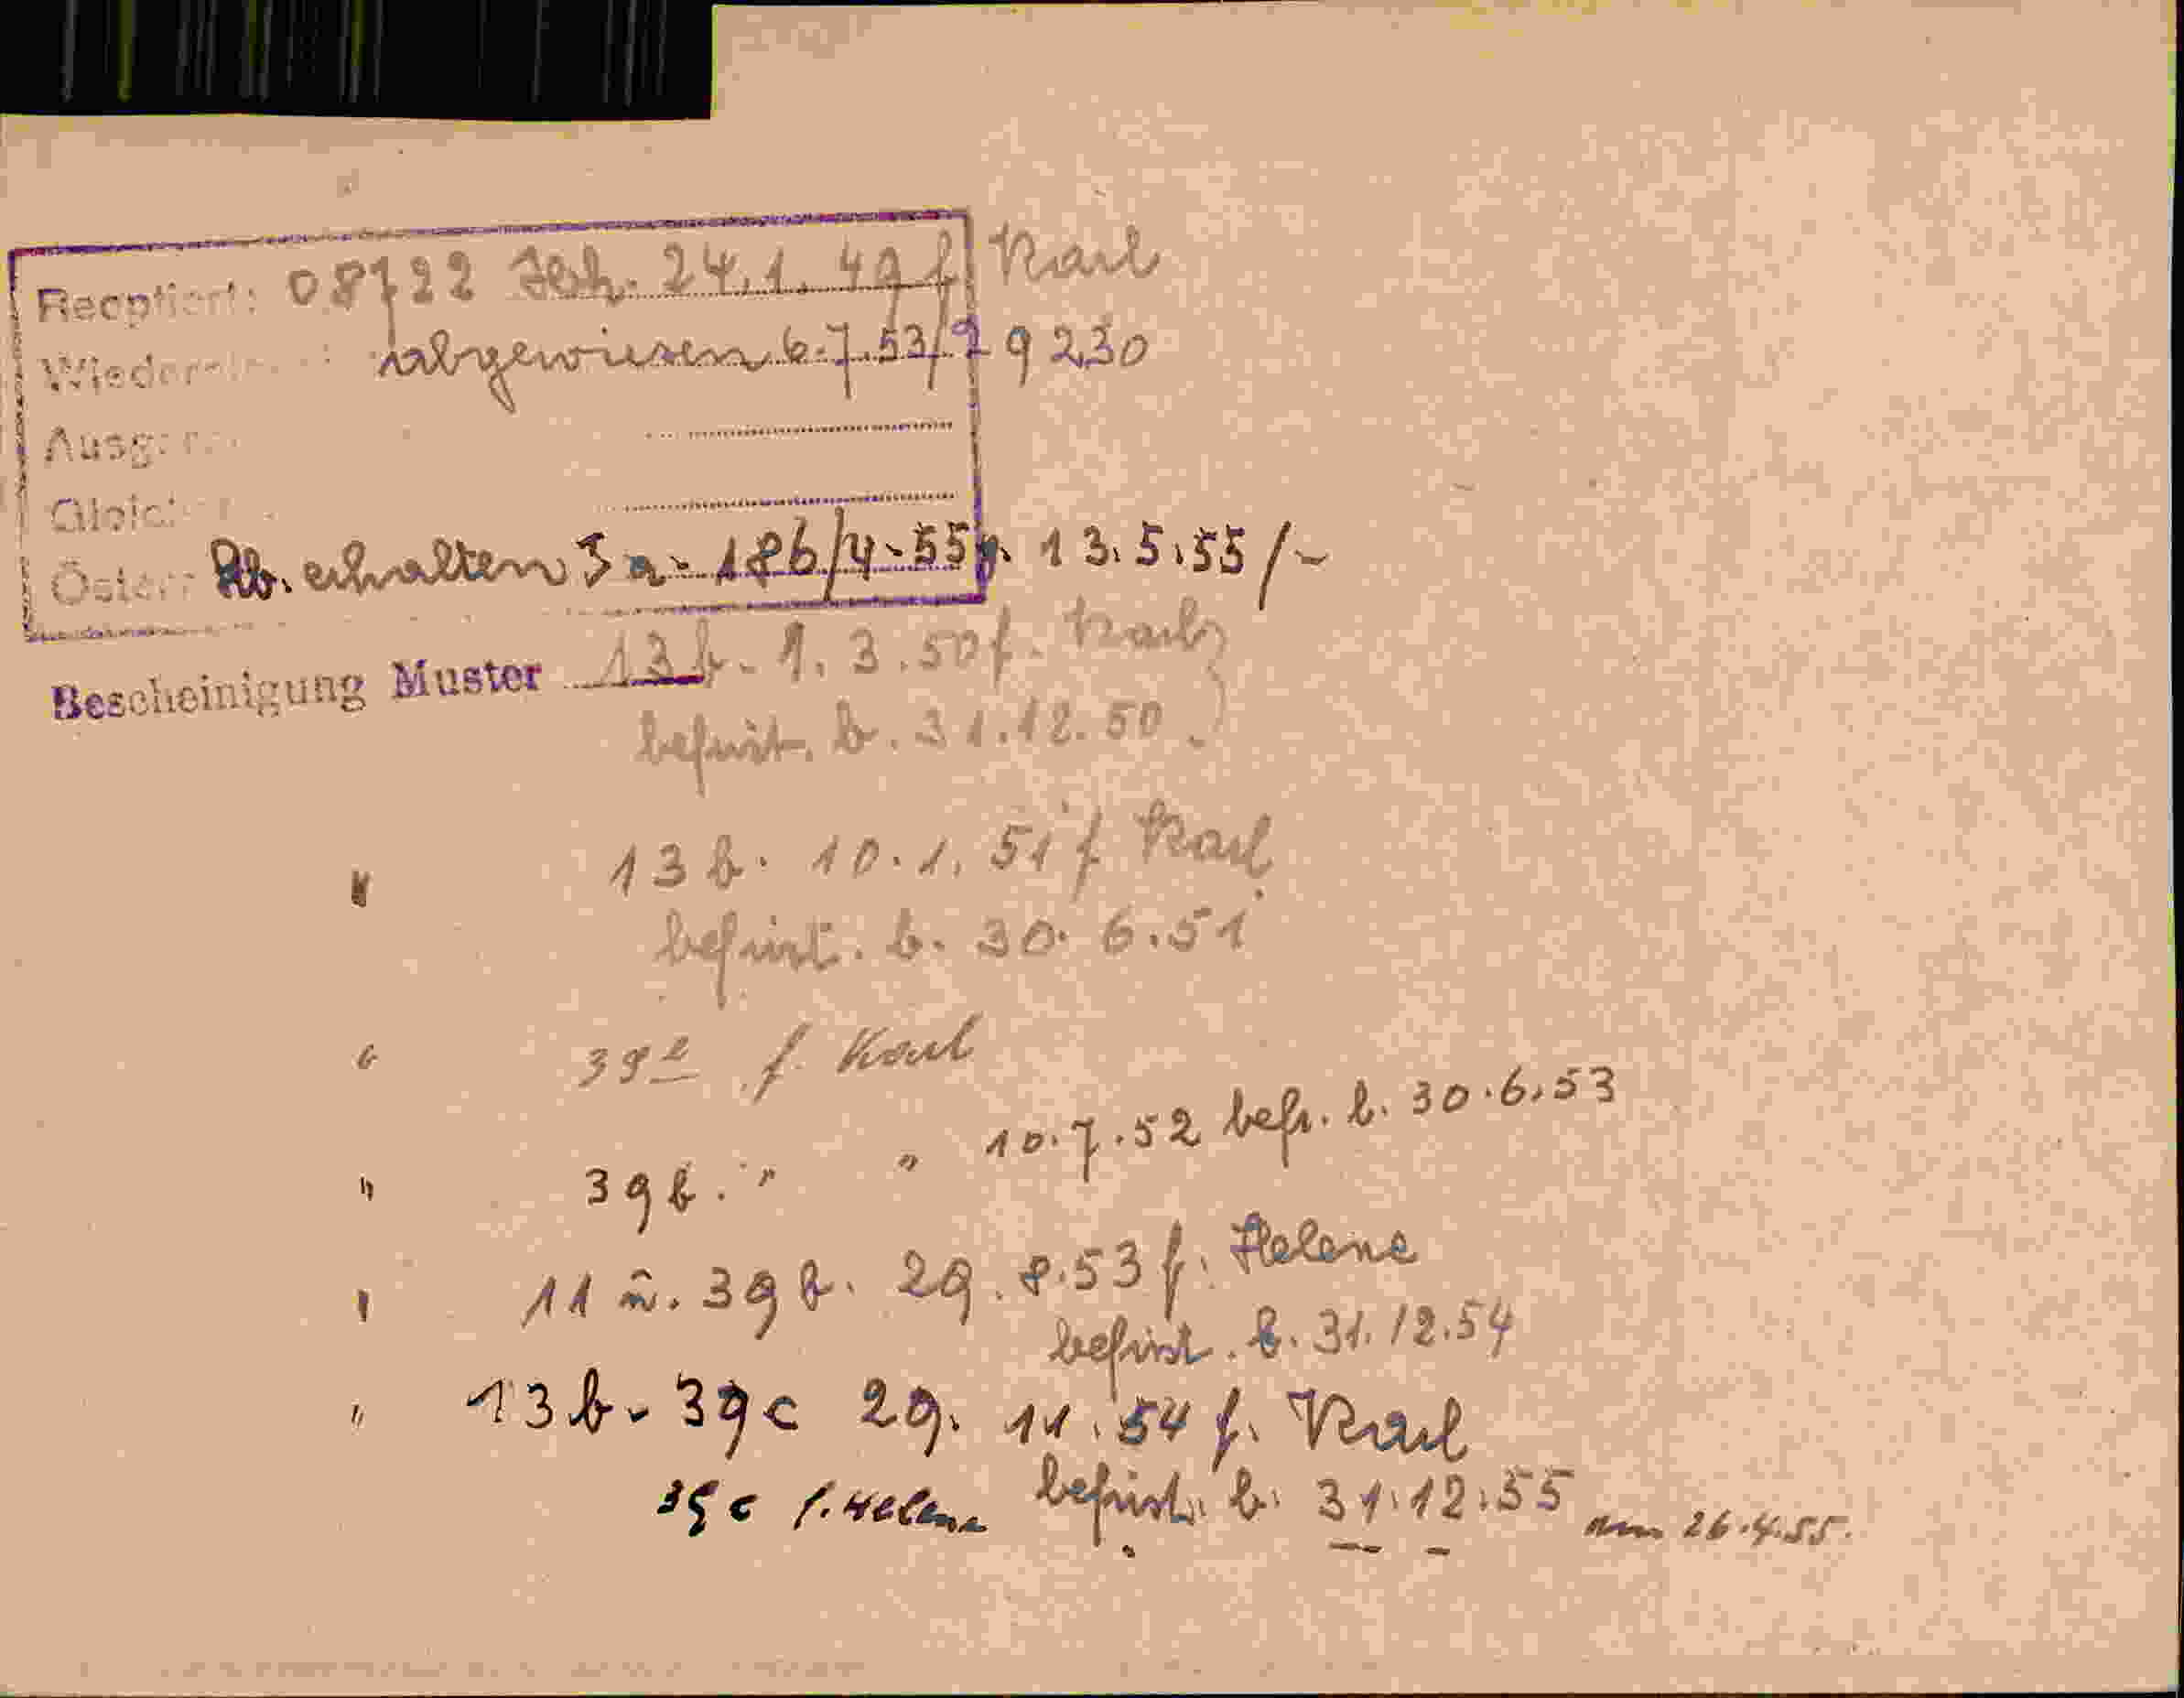 Reoptiert: 08722 24.1.49 f Karl
abgewiesen 6.7.53/29230
erhalten 5a-186/4-55 13.5.55/-
Bescheinigung Muster 13b. 1.3.50 f. Karl
befrist. b. 31.12.50.
" 13b. 10.1.51 f Karl
befrist. b. 30.6.51
" f. Karl
" 39b. " " 10.7.52 befr. b. 30.6.53
" 11 u. 39b. 29.8.53 f. Helene
befrist. b. 31.12.54
" 13b. 39c 29.11.54 f. Karl
befrist. b. 31.12.55
39c f. Helene am 26.4.55.